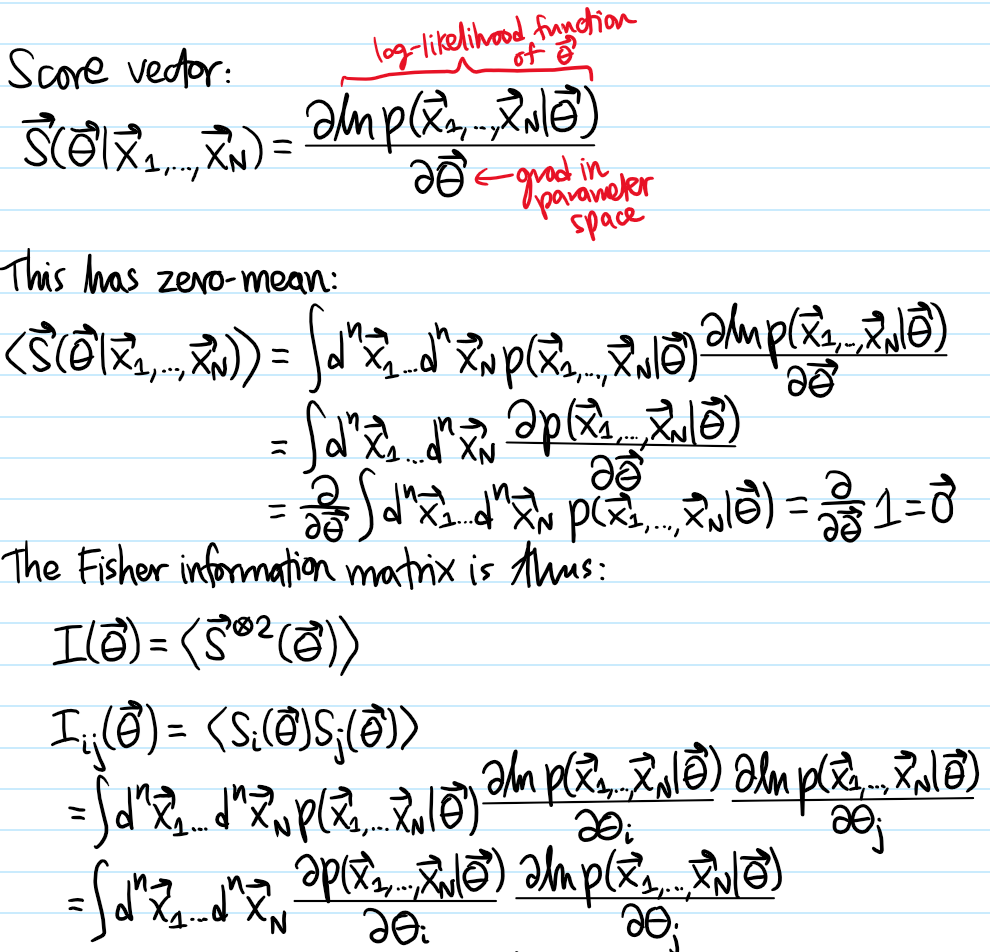 log-likelihood function
of θ⃗
Score vector:
S⃗(θ⃗|x⃗₁,...,x⃗_N) = ∂ln p(x⃗₁,...,x⃗_N|θ⃗)/∂θ⃗
← grad in
parameter
space
This has zero-mean:
⟨S⃗(θ⃗|x⃗₁,...,x⃗_N)⟩ = ∫dⁿx⃗₁...dⁿx⃗_N p(x⃗₁,...,x⃗_N|θ⃗) ∂ln p(x⃗₁,...,x⃗_N|θ⃗)/∂θ⃗
= ∫dⁿx⃗₁...dⁿx⃗_N ∂p(x⃗₁,...,x⃗_N|θ⃗)/∂θ⃗
= ∂/∂θ⃗ ∫dⁿx⃗₁...dⁿx⃗_N p(x⃗₁,...,x⃗_N|θ⃗) = ∂/∂θ⃗ 1 = 0⃗
The Fisher information matrix is thus:
I(θ⃗) = ⟨S⃗^⊗2(θ⃗)⟩
I_ij(θ⃗) = ⟨S_i(θ⃗)S_j(θ⃗)⟩
= ∫dⁿx⃗₁...dⁿx⃗_N p(x⃗₁,...x⃗_N|θ⃗) ∂ln p(x⃗₁,...,x⃗_N|θ⃗)/∂θ_i ∂ln p(x⃗₁,...,x⃗_N|θ⃗)/∂θ_j
= ∫dⁿx⃗₁...dⁿx⃗_N ∂p(x⃗₁,...,x⃗_N|θ⃗)/∂θ_i ∂ln p(x⃗₁,...,x⃗_N|θ⃗)/∂θ_j